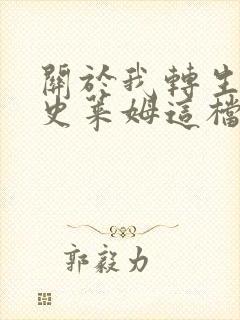 關於我轉生
史萊姆這檔
郭毅力